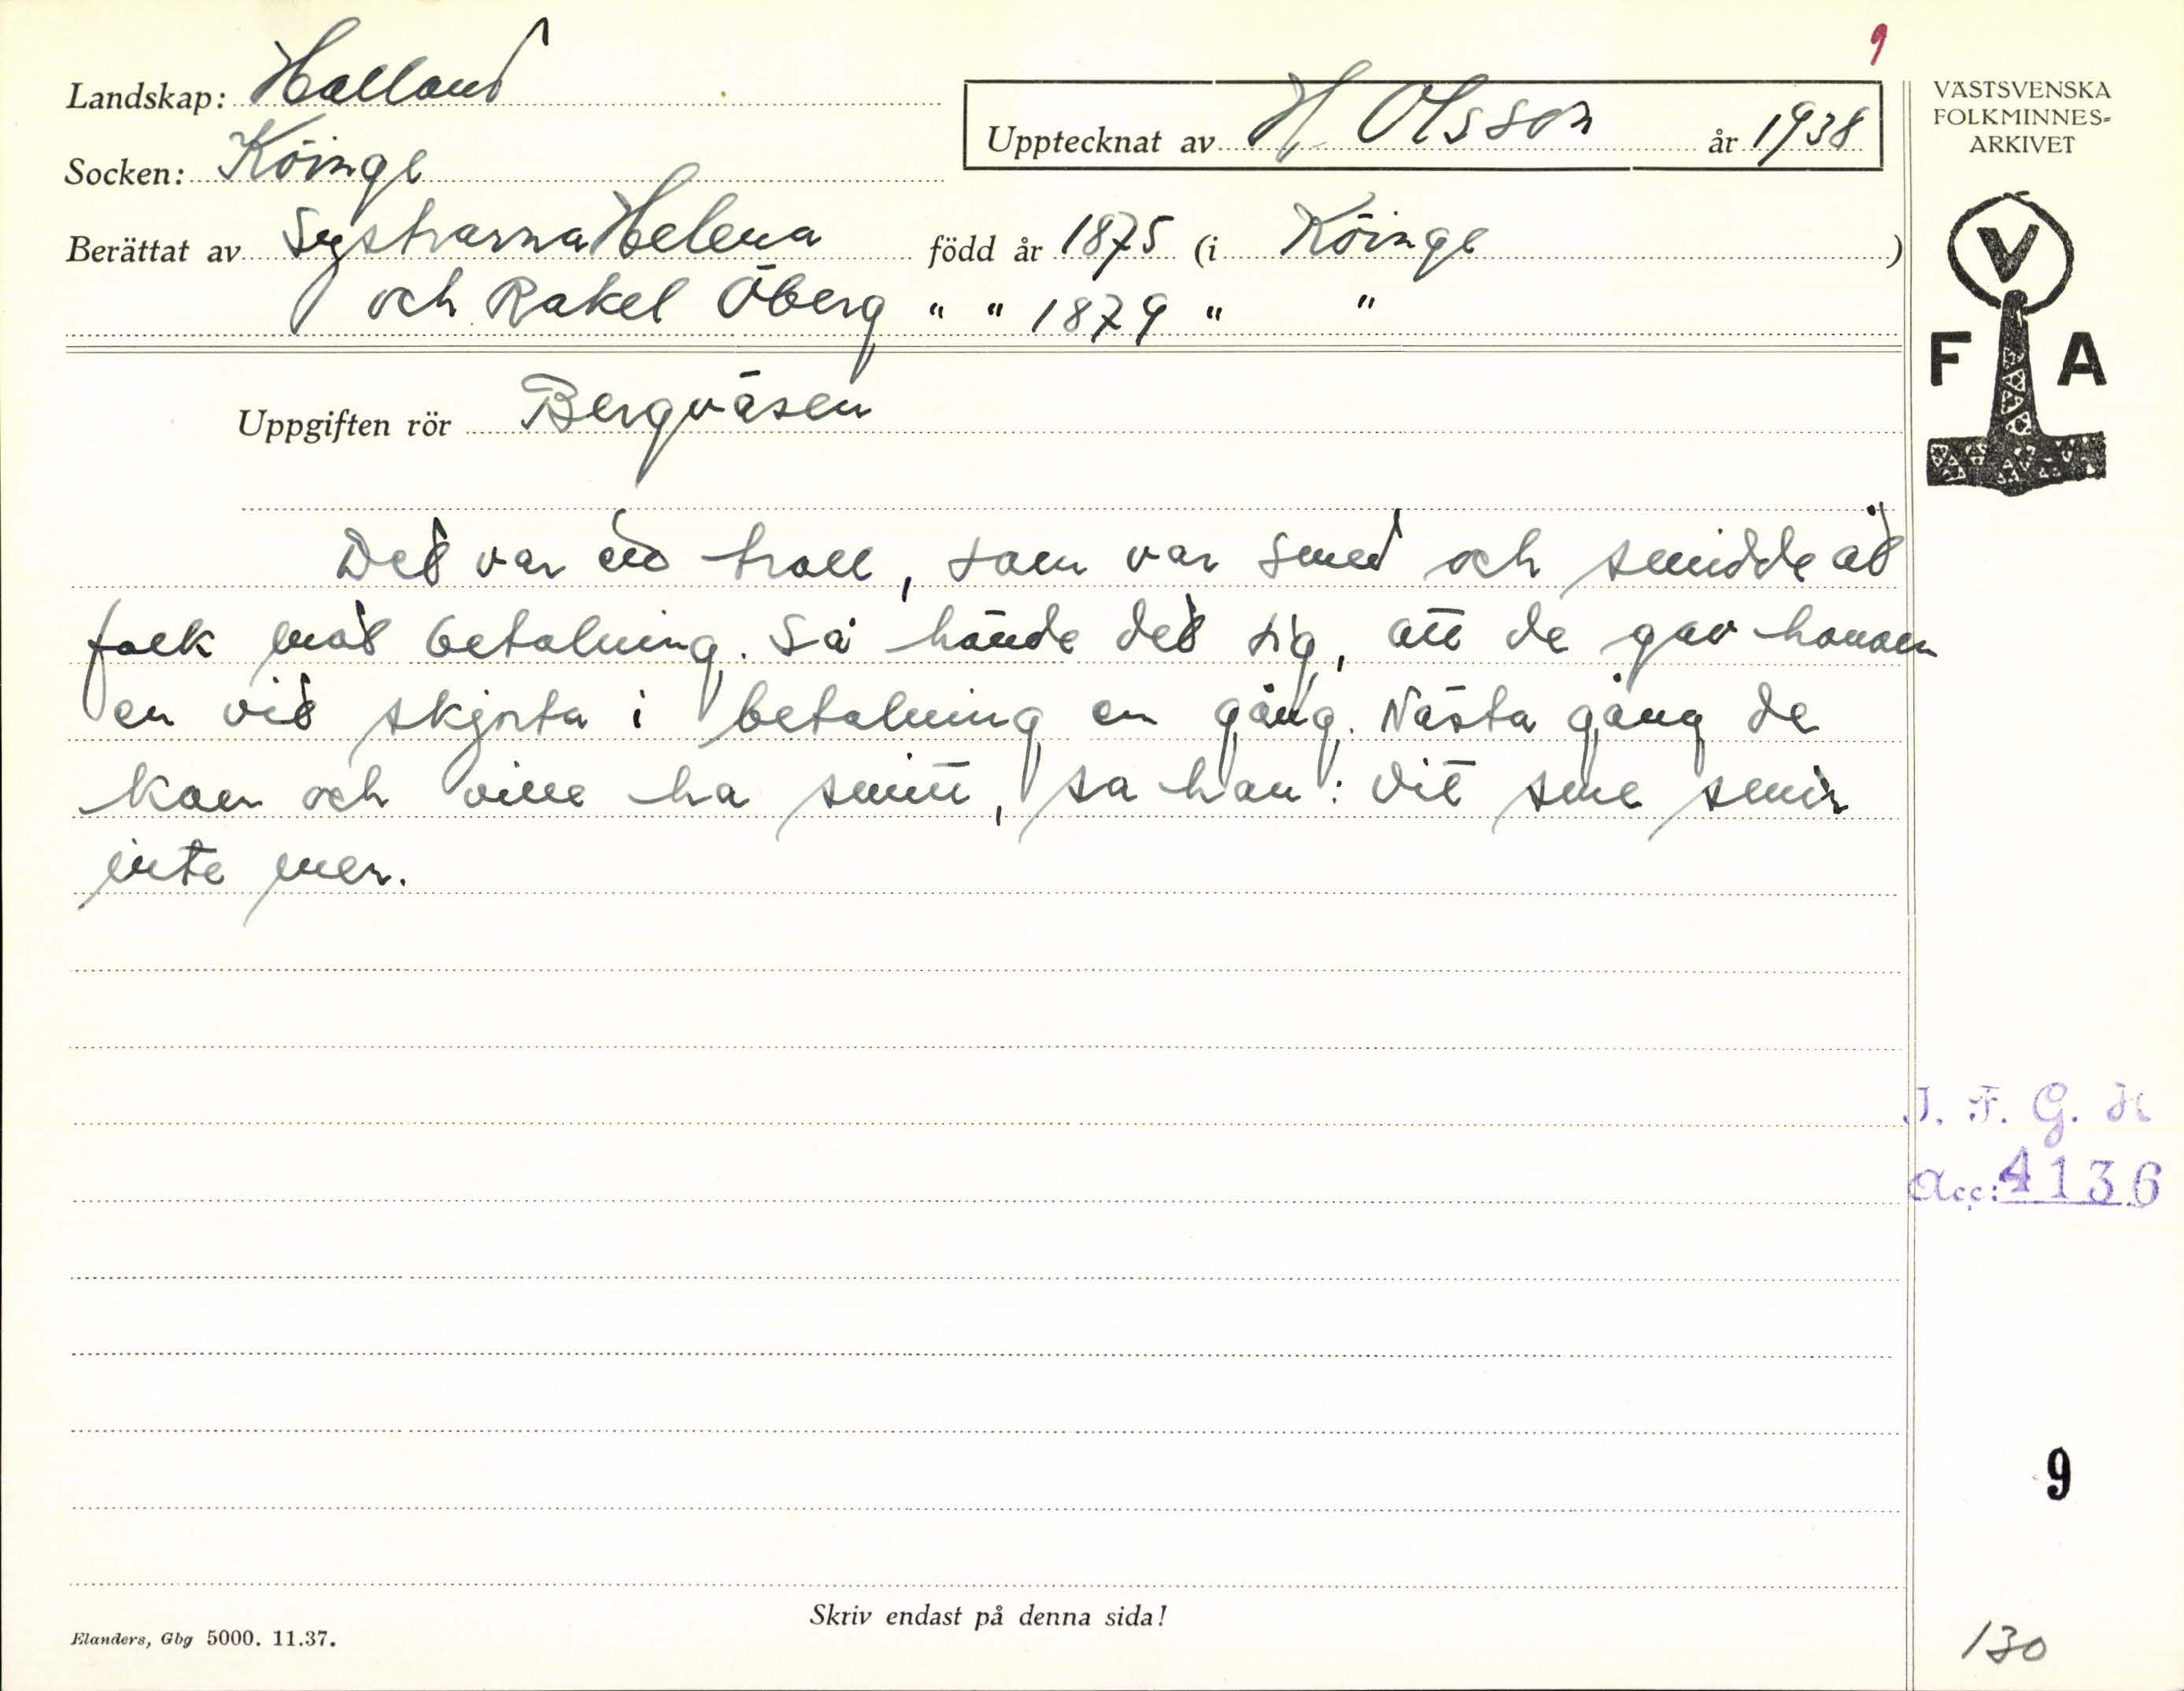 9
Landskap: Halland
Upptecknat av H. Olsson år 1938
VÄSTSVENSKA
FOLKMINNES-
ARKIVET
Socken: Köinge
Berättat av Systrarna Helena född år 1875 (i Köinge)
och Rakel Öberg " " 1879 " "
V
F A
Uppgiften rör Bergväsen
Det var ett troll, som var smed och smidde åt
folk mot betalning. Så hände det sig, att de gav honom
en vit skjorta i betalning en gång. Nästa gång de
kom och ville ha smitt, sa han: Vit sme smir
inte mer.
I. F. G. H
Acc: 4136
9
Skriv endast på denna sida!
Elanders, Gbg 5000. 11.37.
130